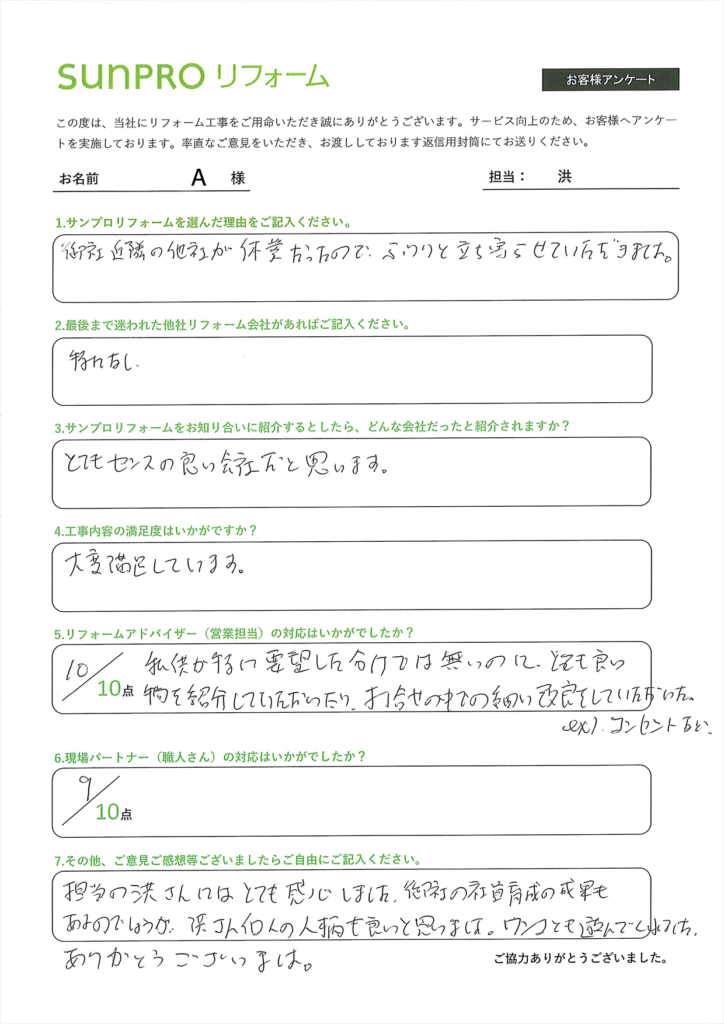 sunpro リフォーム
お客様アンケート
この度は、当社にリフォーム工事をご用命いただき誠にありがとうございます。サービス向上のため、お客様へアンケー
トを実施しております。率直なご意見をいただき、お渡ししております返信用封筒にてお送りください。
お名前 A 様
担当： 洪
1.サンプロリフォームを選んだ理由をご記入ください。
御社近隣の他社が休業だったので、ふらりと立ち寄らせていただきました。
2.最後まで迷われた他社リフォーム会社があればご記入ください。
特になし。
3.サンプロリフォームをお知り合いに紹介するとしたら、どんな会社だったと紹介されますか？
とてもセンスの良い会社だと思います。
4.工事内容の満足度はいかがですか？
大変満足しています。
5.リフォームアドバイザー（営業担当）の対応はいかがでしたか？
10/10点
私供が特に要望した分けでは無いのに、とても良い
物を紹介していただいたり、打合せの中での細い改良をしていただいた。
ex). コンセントなど、
6.現場パートナー（職人さん）の対応はいかがでしたか？
9/10点
7.その他、ご意見ご感想等ございましたらご自由にご記入ください。
担当の洪さんにはとても感心しました。御社の社員育成の成果も
あるのでしょうが、洪さん個人の人柄も良いと思いました。ワンコとも遊んでくれてました。
ありがとうございました。
ご協力ありがとうございました。